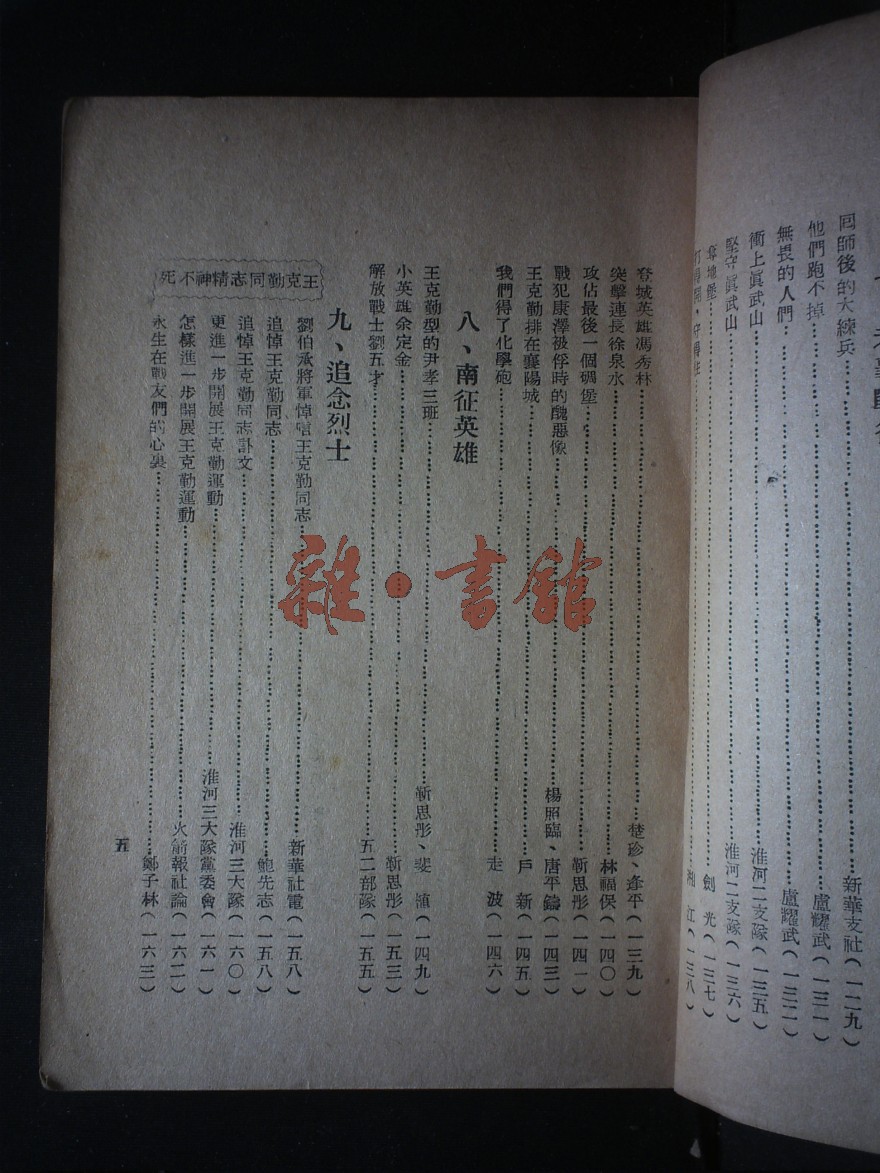 回師後的大練兵……新華支社(一二九)
他們跑不掉……盧耀武(一三一)
無畏的人們……盧耀武(一三二)
衝上眞武山……淮河二支隊(一三五)
堅守眞武山……淮河二支隊(一三六)
奪地堡……劍光(一三七)
湘江(一三八)
登城英雄馮秀林……楚珍、逢平(一三九)
突擊連長徐泉水……林福保(一四〇)
攻佔最後一個碉堡……靳思彤(一四一)
戰犯康澤被俘時的醜惡像……楊照臨、唐平鑄(一四三)
王克勤排在襄陽城……戶新(一四五)
我們得了化學砲……走波(一四六)
八、南征英雄
王克勤型的尹孝三班……靳思彤、斐植(一四九)
小英雄余定金……靳思彤(一五三)
解放戰士劉五才……五二部隊(一五五)
九、追念烈士
王克勤同志精神不死
劉伯承將軍悼唁王克勤同志……新華社電(一五八)
追悼王克勤同志……鮑先志(一五八)
追悼王克勤同志訃文……淮河三大隊(一六〇)
更進一步開展王克勤運動……淮河三大隊黨委會(一六一)
怎樣進一步開展王克勤運動……火箭報社論(一六二)
永生在戰友們的心裏……鄭子林(一六三)
五
雜·書館